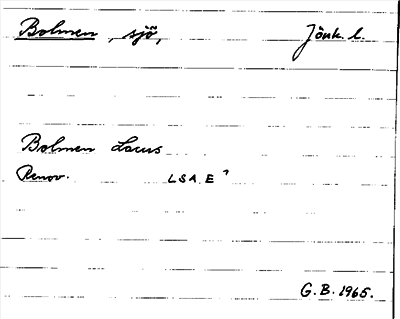 Bolmen, sjö, Jönk. l.
Bolmen Lacus
Renov. LSA. E 7
G.B. 1965.